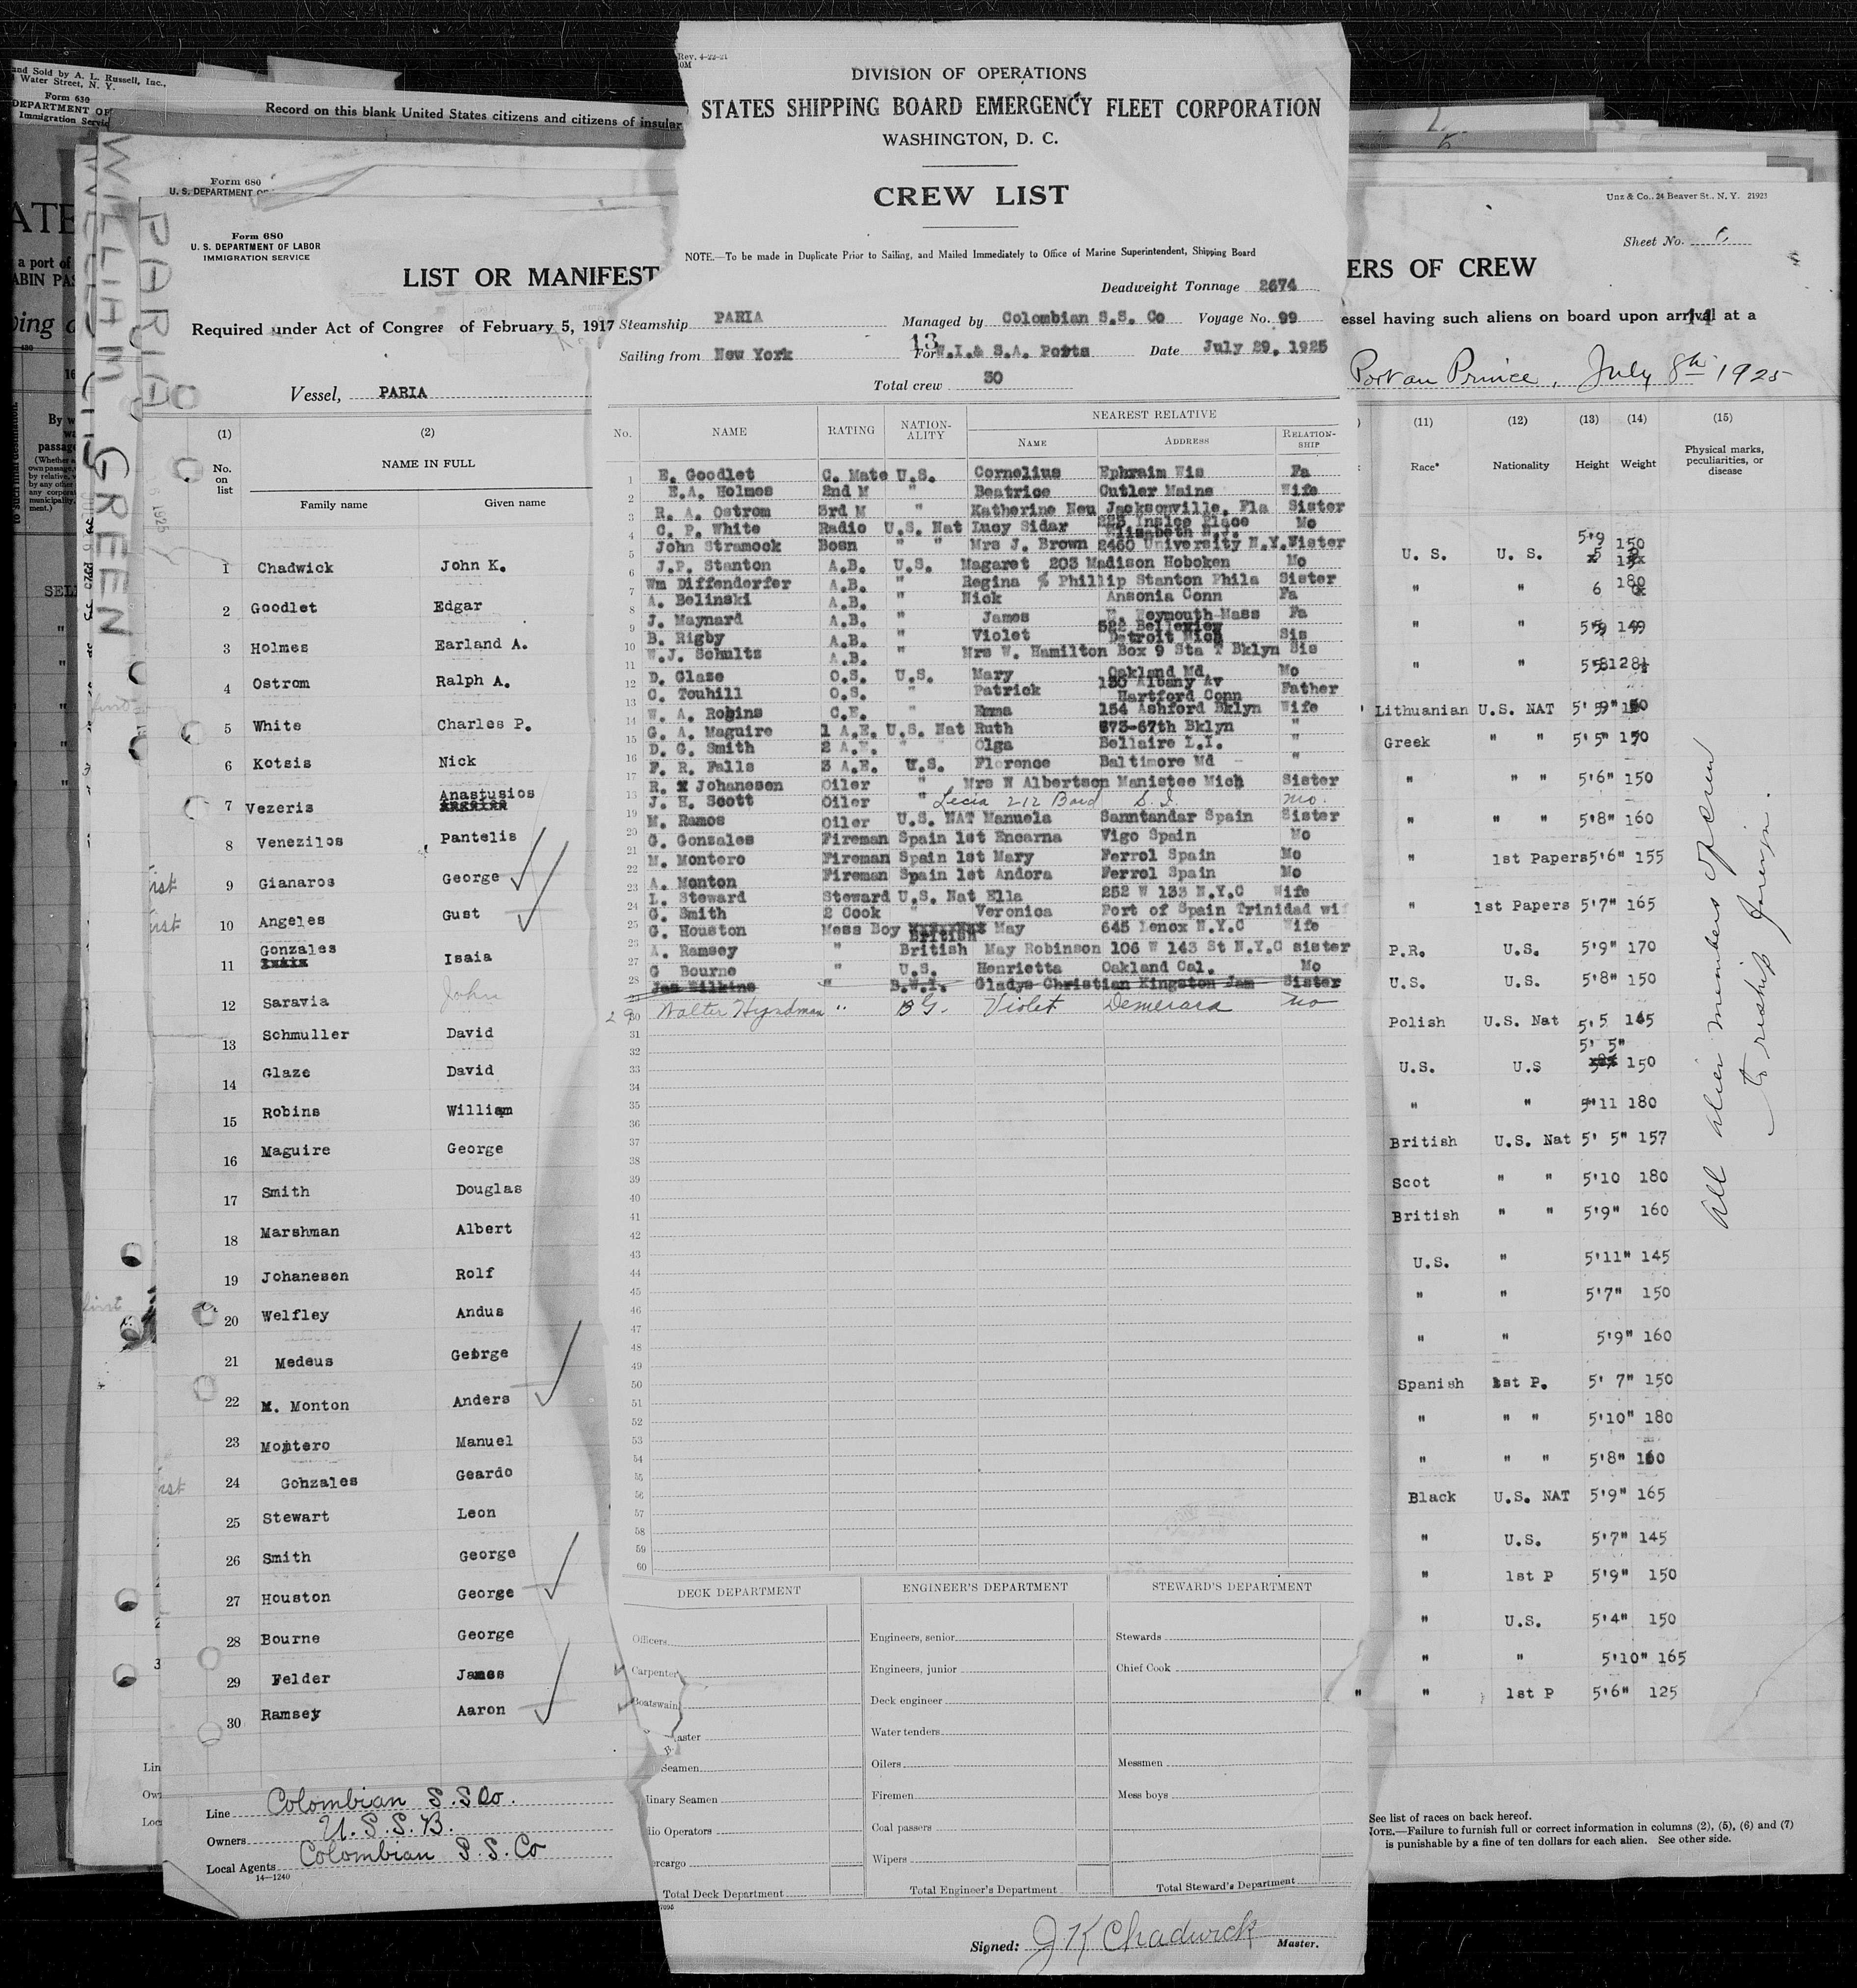 and Sold by A. L. Russell, Inc.,
Water Street, N. Y.
Form 630
DEPARTMENT OF
Immigration Servic
Record on this blank United States citizens and citizens of insular
WILLIAM GREEN
PARIA
Form 680
U. S. DEPARTMENT OF
Form 680
U. S. DEPARTMENT OF LABOR
IMMIGRATION SERVICE
LIST OR MANIFEST
Required under Act of Congres of February 5, 1917
Vessel, PARIA
(1) (2)
No. on list
NAME IN FULL
Family name Given name
1 Chadwick John K.
2 Goodlet Edgar
3 Holmes Earland A.
4 Ostrom Ralph A.
5 White Charles P.
6 Kotsis Nick
7 Vezeris Anastusios
8 Venezilos Pantelis
9 Gianaros George
10 Angeles Gust
11 Gonzales Isaia
12 Saravia John
13 Schmuller David
14 Glaze David
15 Robins William
16 Maguire George
17 Smith Douglas
18 Marshman Albert
19 Johanesen Rolf
20 Welfley Andus
21 Medeus George
22 M. Monton Anders
23 Montero Manuel
24 Gonzales Geardo
25 Stewart Leon
26 Smith George
27 Houston George
28 Bourne George
29 Felder James
30 Ramsey Aaron
Line Colombian S.S Co.
Owners U.S.S.B.
Local Agents Colombian S.S. Co
14—1240
Rev. 4-22-21
DIVISION OF OPERATIONS
STATES SHIPPING BOARD EMERGENCY FLEET CORPORATION
WASHINGTON, D. C.
CREW LIST
NOTE.—To be made in Duplicate Prior to Sailing, and Mailed Immediately to Office of Marine Superintendent, Shipping Board
Deadweight Tonnage 2674
Steamship PARIA Managed by Colombian S.S. Co Voyage No. 99
13
Sailing from New York For W.I.& S.A. Ports Date July 29, 1925
Total crew 30
No. NAME RATING NATION-ALITY NEAREST RELATIVE
NAME ADDRESS RELATION-SHIP
1 E. Goodlet C. Mate U.S. Cornelius Ephraim Wis Fa
2 E.A. Holmes 2nd M " Beatrice Cutler Maine Wife
3 R. A. Ostrom 3rd M " Katherine Neu Jacksonville, Fla Sister
4 C. P. White Radio U.S. Nat Lucy Sidar 225 Inslee Place Elizabeth N.J. Mo
5 John Stramock Bosn " " Mrs J. Brown 2460 University N.Y. Sister
6 J.P. Stanton A.B. U.S. Magaret 203 Madison Hoboken Mo
7 Wm Diffenderfer A.B. " Regina % Phillip Stanton Phila Sister
8 A. Belinski A.B. " Nick Ansonia Conn Fa
9 J. Maynard A.B. " James E. Weymouth-Mass Fa
10 B. Rigby A.B. " Violet Detroit Mich Sis
11 W.J. Schults A.B. " Mrs W. Hamilton Box 9 Sta T Bklyn Sis
12 D. Glaze O.S. U.S. Mary Oakland Md Mo
13 C. Touhill O.S. " Patrick 130 Albany Av Hartford Conn Father
14 W. A. Robins C.E. " Emma 154 Ashford Bklyn Wife
15 G. A. Maguire 1 A.E. U.S. Nat Ruth 673-67th Bklyn "
16 D. G. Smith 2 A.E. " " Olga Bellaire L.I. "
17 F. R. Falls 3 A.E. U.S. Florence Baltimore Md "
18 R. Johanesen Oiler " Mrs W Albertson Manistee Mich Sister
19 J. H. Scott Oiler " Lecia 212 Bard S.I. mo.
20 M. Ramos Oiler U.S. NAT Manuela Sanntandar Spain Sister
21 G. Gonzales Fireman Spain 1st Encarna Vigo Spain Mo
22 M. Montero Fireman Spain 1st Mary Ferrol Spain Mo
23 A. Monton Fireman Spain 1st Andora Ferrol Spain Mo
24 L. Steward Steward U.S. Nat Ella 252 W 133 N.Y.C Wife
25 G. Smith 2 Cook " Veronica Port of Spain Trinidad wif
26 G. Houston Mess Boy British May 645 Lenox N.Y.C Wife
27 A. Ramsey " British May Robinson 106 W 143 St N.Y.C sister
28 G Bourne " U.S. Henrietta Oakland Cal. Mo
Jas Wilkins " B.W.I. Gladys Christian Kingston Jam Sister
29 Walter Hyndman " B G. Violet Demerara mo
30
31
32
33
34
35
36
37
38
39
40
41
42
43
44
45
46
47
48
49
50
51
52
53
54
55
56
57
58
59
60
DECK DEPARTMENT ENGINEER'S DEPARTMENT STEWARD'S DEPARTMENT
Officers Engineers, senior Stewards
Carpenter Engineers, junior Chief Cook
Boatswain Deck engineer
aster Water tenders
Seamen Oilers Messmen
dinary Seamen Firemen Mess boys
dio Operators Coal passers
ercargo Wipers
Total Deck Department Total Engineer's Department Total Steward's Department
Signed: J K Chadwick Master.
Unz & Co., 24 Beaver St., N. Y. 21923
Sheet No.
ERS OF CREW
essel having such aliens on board upon arrival at a
14
Port au Prince, July 8th 1925
(11) (12) (13) (14) (15)
Race* Nationality Height Weight Physical marks, peculiarities, or disease
U. S. U. S. 5'9 150
" " 6 180
" " 5'9 149
" " 5'8 128½
Lithuanian U.S. NAT 5' 9" 150
Greek " " 5'5" 150
" " " 5'6" 150
" " " 5'8" 160
" 1st Papers 5'6" 155
" 1st Papers 5'7" 165
P.R. U.S. 5'9" 170
U.S. U.S. 5'8" 150
Polish U.S. Nat 5'5 145
U.S. U.S 5' 5" 150
" " 5'11 180
British U.S. Nat 5' 5" 157
Scot " " 5'10 180
British " " 5'9" 160
U.S. " 5'11" 145
" " 5'7" 150
" " 5'9" 160
Spanish 1st P. 5' 7" 150
" " " 5'10" 180
" " " 5'8" 160
Black U.S. NAT 5'9" 165
" U.S. 5'7" 145
" 1st P 5'9" 150
" U.S. 5'4" 150
" " 5'10" 165
" 1st P 5'6" 125
All alien members of crew
to reship foreign.
See list of races on back hereof.
NOTE.—Failure to furnish full or correct information in columns (2), (5), (6) and (7)
is punishable by a fine of ten dollars for each alien. See other side.